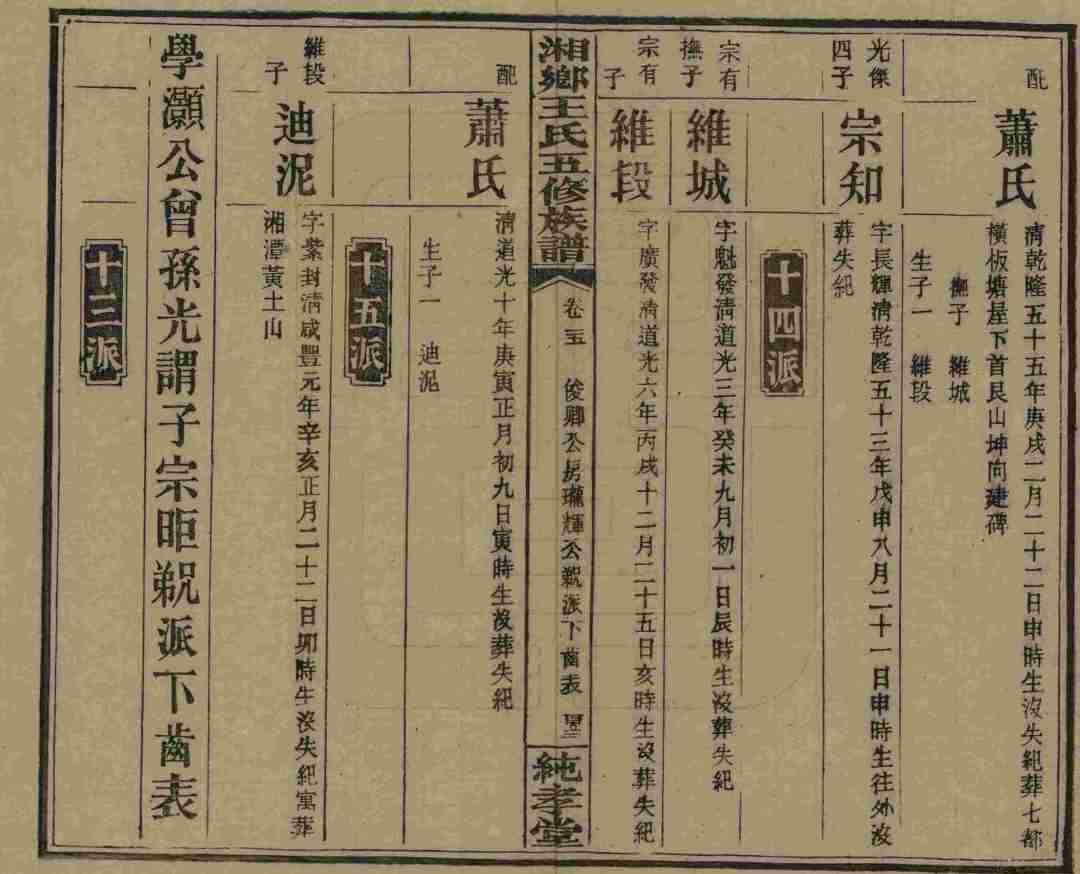 配
蕭氏
清乾隆五十五年庚戌二月二十二日申時生沒失紀葬七都
橫板塘屋下首艮山坤向建碑
撫子 維城
生子一 維段
光傑
四子
宗知
字長輝清乾隆五十三年戊申八月二十一日申時生往外沒
葬失紀
十四派
宗有
撫子
維城
字魁發清道光三年癸未九月初一日辰時生沒葬失紀
宗有
子
維段
字廣發清道光六年丙戌十二月二十五日亥時生沒葬失紀
湘鄉王氏五修族譜
卷 俊卿公房瓏輝公派下齒表
純孝堂
配
蕭氏
清道光十年庚寅正月初九日寅時生沒葬失紀
生子一 迪泥
十五派
維段
子
迪泥
字紫封清咸豐元年辛亥正月二十二日卯時生沒失紀寓葬
湘潭黃土山
學灝公曾孫光謂子宗派下齒表
十三派